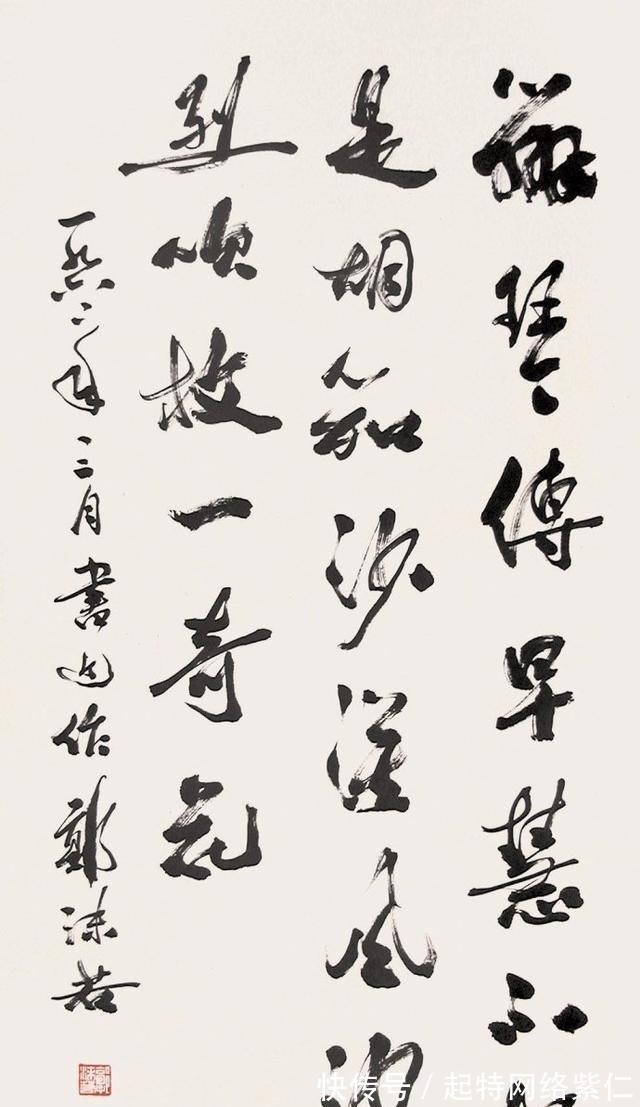 辨琴傳早慧不
是胡笳沙漠風沙
烈吹放一奇花
一九六二年三月書近作郭沫若
快传号/起特网络紫仁